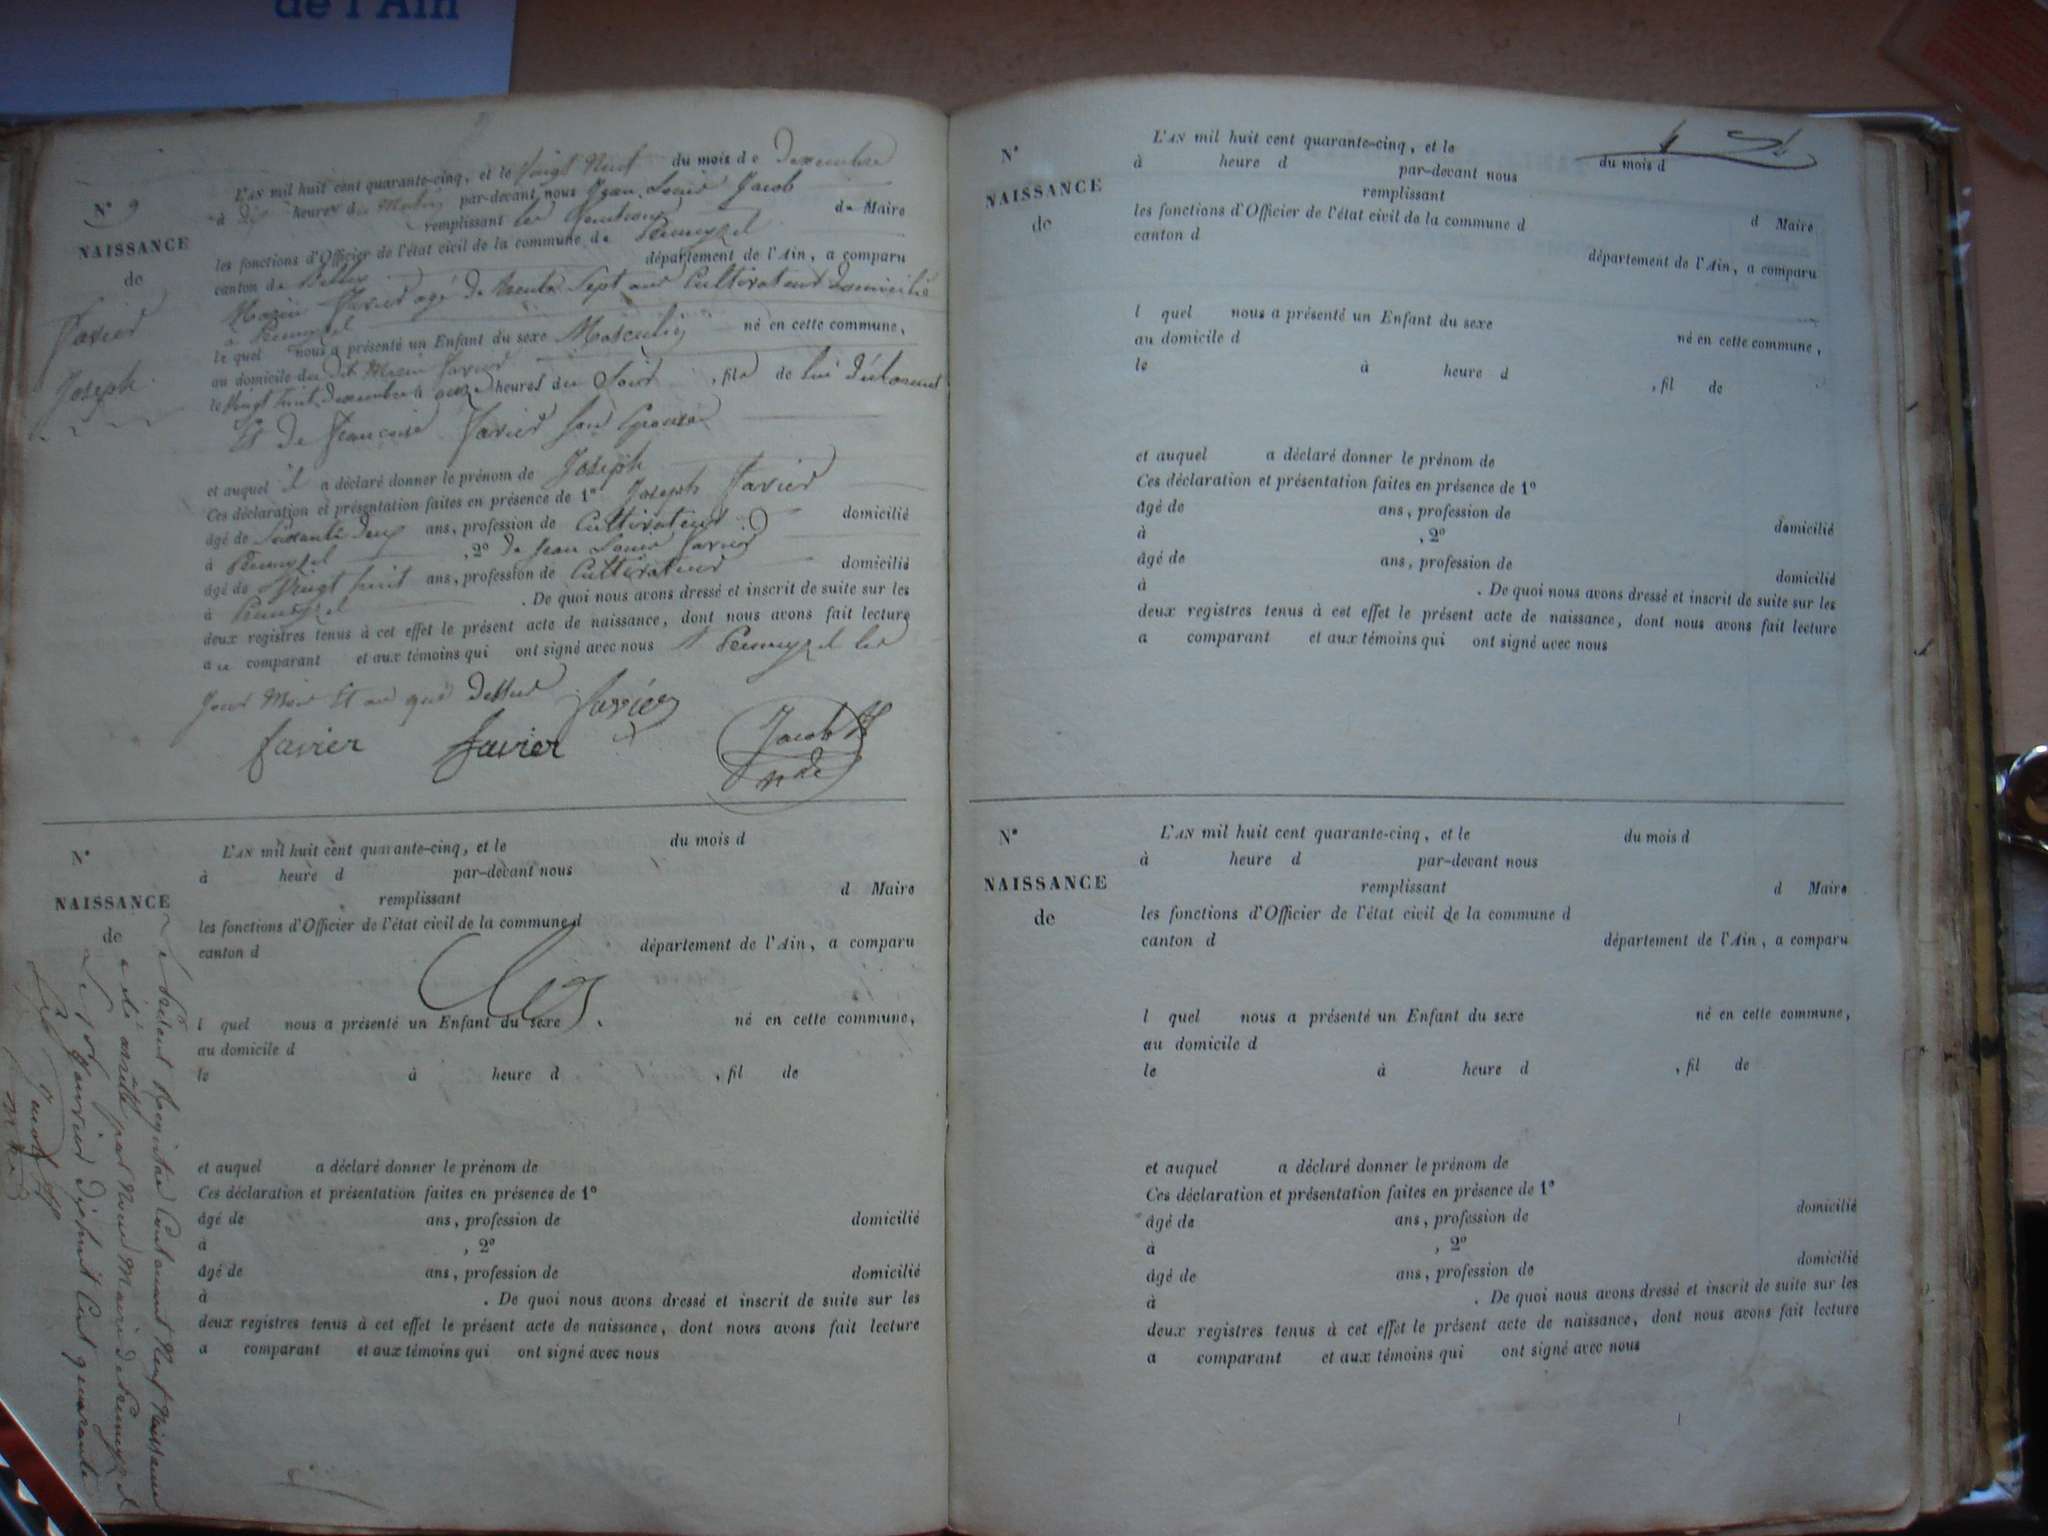 de l'Ain
N° 9
NAISSANCE
de
Favier
Joseph
L'AN mil huit cent quarante-cinq, et le vingt neuf du mois de Decembre
à dix heures du Matin par-devant nous Jean Louis Jacob
remplissant de Maire
les fonctions d'Officier de l'état civil de la commune de Peumezel
canton de Belley département de l'Ain, a comparu
Favier agé de trente Sept ans Cultivateur domicilié
à Peumezel
le quel nous a présenté un Enfant du sexe Masculin né en cette commune,
au domicile du dit Favier
le vingt huit Decembre à onze heures du Soir, fils de lui déclarant
Et de Françoise Favier son Epouse
et auquel il a déclaré donner le prénom de Joseph
Ces déclaration et présentation faites en présence de 1° Joseph Favier
âgé de Soixante deux ans, profession de Cultivateur domicilié
à Peumezel, 2° de Jean Louis Favier
âgé de Vingt huit ans, profession de Cultivateur domicilié
à Peumezel. De quoi nous avons dressé et inscrit de suite sur les
deux registres tenus à cet effet le présent acte de naissance, dont nous avons fait lecture
au comparant et aux témoins qui ont signé avec nous A Peumezel les
Jour Mois Et an que dessus
Favier
favier favier Jacob
N°
NAISSANCE
de
L'AN mil huit cent quarante-cinq, et le du mois d
à heure d par-devant nous
remplissant d Maire
les fonctions d'Officier de l'état civil de la commune d
canton d département de l'Ain, a comparu
Clos
l quel nous a présenté un Enfant du sexe né en cette commune,
au domicile d
le à heure d, fil de
et auquel a déclaré donner le prénom de
Ces déclaration et présentation faites en présence de 1°
âgé de ans, profession de domicilié
à, 2°
âgé de ans, profession de domicilié
à. De quoi nous avons dressé et inscrit de suite sur les
deux registres tenus à cet effet le présent acte de naissance, dont nous avons fait lecture
a comparant et aux témoins qui ont signé avec nous
Le Présent Registre Contenant Neuf Naissances
a été arrêté par Nous Maire de Peumezel
Le Janvier dix huit Cent quarante
N°
NAISSANCE
de
L'AN mil huit cent quarante-cinq, et le du mois d
à heure d par-devant nous
remplissant d Maire
les fonctions d'Officier de l'état civil de la commune d
canton d département de l'Ain, a comparu
l quel nous a présenté un Enfant du sexe né en cette commune,
au domicile d
le à heure d, fil de
et auquel a déclaré donner le prénom de
Ces déclaration et présentation faites en présence de 1°
âgé de ans, profession de domicilié
à, 2°
âgé de ans, profession de domicilié
à. De quoi nous avons dressé et inscrit de suite sur les
deux registres tenus à cet effet le présent acte de naissance, dont nous avons fait lecture
a comparant et aux témoins qui ont signé avec nous
N°
NAISSANCE
de
L'AN mil huit cent quarante-cinq, et le du mois d
à heure d par-devant nous
remplissant d Maire
les fonctions d'Officier de l'état civil de la commune d
canton d département de l'Ain, a comparu
l quel nous a présenté un Enfant du sexe né en cette commune,
au domicile d
le à heure d, fil de
et auquel a déclaré donner le prénom de
Ces déclaration et présentation faites en présence de 1°
âgé de ans, profession de domicilié
à, 2°
âgé de ans, profession de domicilié
à. De quoi nous avons dressé et inscrit de suite sur les
deux registres tenus à cet effet le présent acte de naissance, dont nous avons fait lecture
a comparant et aux témoins qui ont signé avec nous